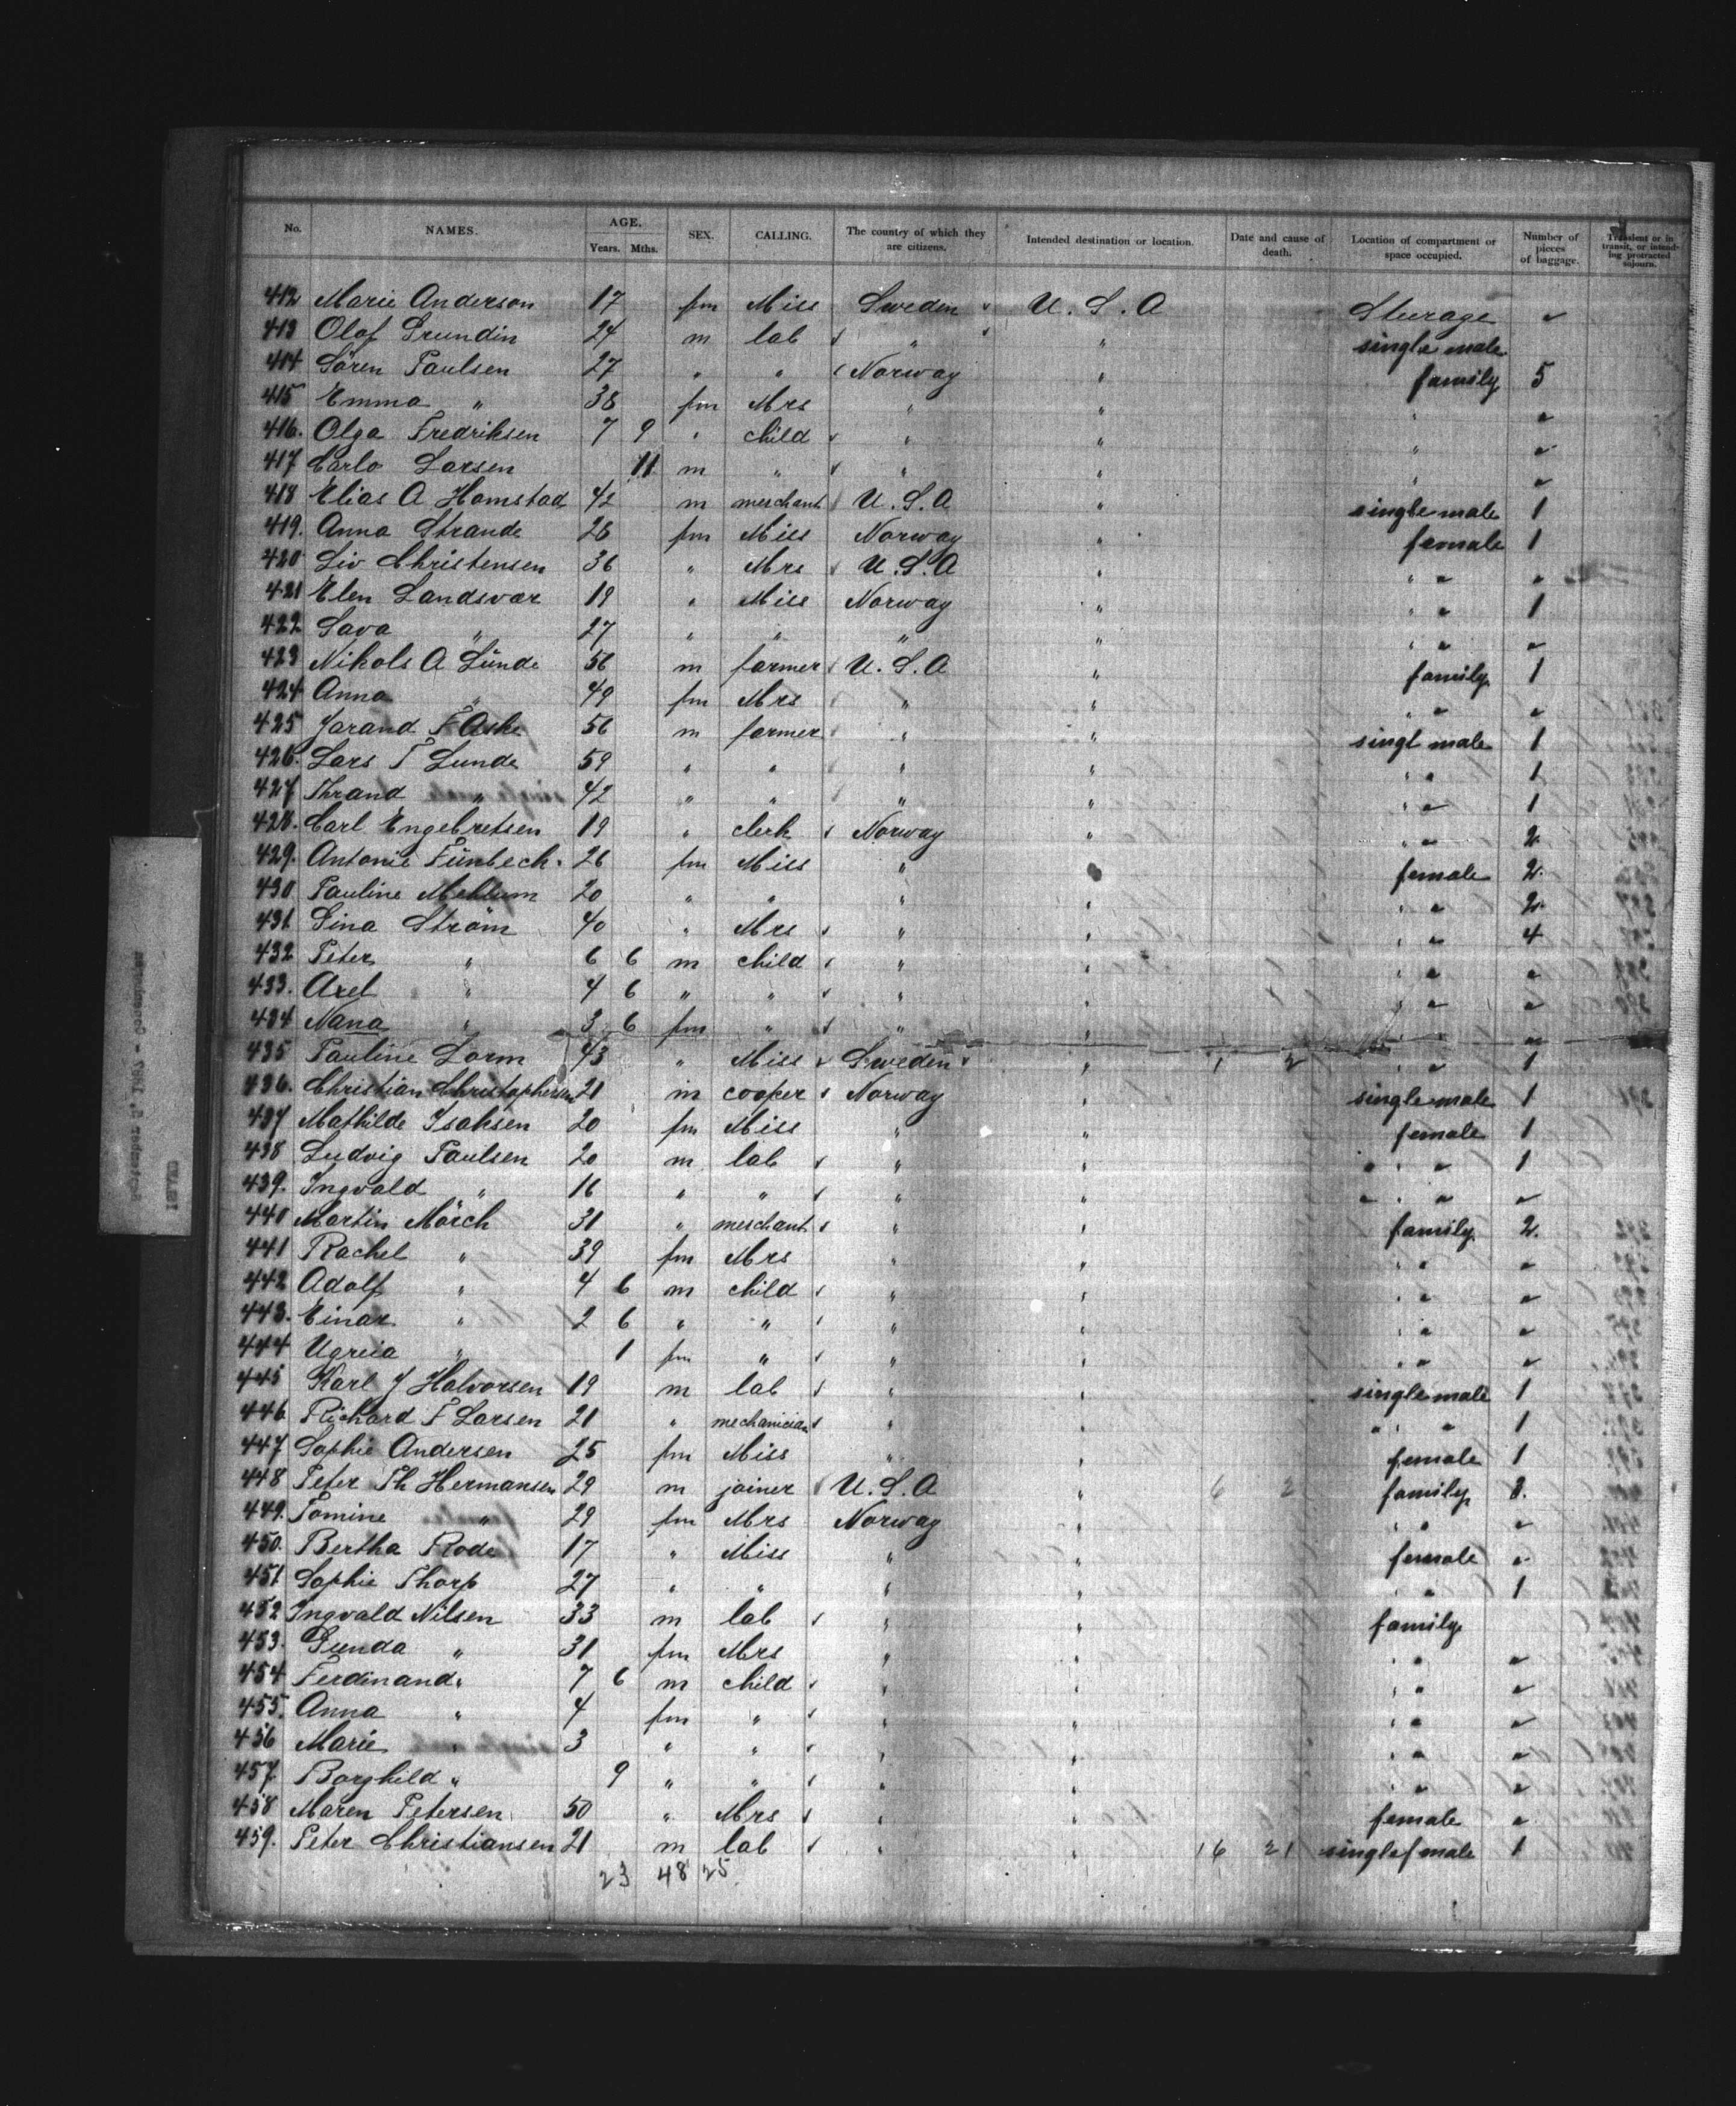 No. NAMES. AGE. Years. Mths. SEX. CALLING. The country of which they are citizens. Intended destination or location. Date and cause of death. Location of compartment or space occupied. Number of pieces of baggage. Transient or in transit, or intending protracted sojourn.
412 Marie Anderson 17 fm Miss Sweden U.S.A Steerage "
413 Olof Grundin 24 m lab " " single male
414 Sören Paulsen 27 " " Norway " family 5
415 Emma " 38 fm Mrs " " " "
416. Olga Fredriksen 7 9 " child " " " "
417 Carlo Larsen 11 m " " " " "
418 Elias A Hamstad 42 m merchant U.S.A " single male 1
419. Anna Strande 26 fm Miss Norway " female 1
420 Liv Christensen 36 " Mrs U.S.A " " " "
421 Elen Landsvær 19 " Miss Norway " " " 1
422 Sava " 27 " " " " " " "
423 Nikols A Lünde 56 m farmer U.S.A " family 1
424 Anna " 49 fm Mrs " " " " "
425 Jarand F Aske 56 m farmer " " singl male 1
426. Lars T Lunde 59 " " " " " " 1
427 Thrand " 42 " " " " " " 1
428. Carl Engebretsen 19 " clerk Norway " " " 2
429. Antonie Fünbech 26 fm Miss " " female 2
430 Pauline Mehlum 20 " " " " " " 2
431 Gina Ström 40 " Mrs " " " " 4
432 Peter " 6 6 m child " " " " "
433. Axel " 4 6 " " " " " " "
434 Nana " 3 6 fm " " " " " "
435 Pauline Lorm 43 " Miss Sweden " 1 2 " " 1
436. Christian Christophersen 21 m cooper Norway " single male 1
437 Mathilde Isaksen 20 fm Miss " " female 1
438 Ludvig Paulsen 20 m lab " " " " " 1
439. Ingvald " 16 " " " " " " " "
440 Martin Mörch 31 " merchant " " family 2
441 Rachel " 39 fm Mrs " " " " "
442 Adolf " 4 6 m child " " " " "
443. Einar " 2 6 " " " " " " "
444 " 1 fm " " " " " "
445 Karl J Halvorsen 19 m lab " " single male 1
446 Richard F Larsen 21 " mechanician " " " " " 1
447 Sophie Andersen 25 fm Miss " " female 1
448 Peter Th Hermansen 29 m joiner U.S.A " 6 2 family 3.
449. Tomine " 29 fm Mrs Norway " " " "
450. Bertha Rode 17 " Miss " " female "
451 Sophie Thorp 27 " " " " " 1
452 Ingvald Nilsen 33 m lab " " family
453. Gunda " 31 fm Mrs " " " " "
454 Ferdinand " 7 6 m child " " " " "
455. Anna " 4 fm " " " " " "
456 Marie " 3 " " " " " " "
457. Borghild " 9 " " " " " " "
458 Maren Petersen 50 " Mrs " " female "
459. Peter Christiansen 21 m lab " " 16 21 single male 1
23 48 25